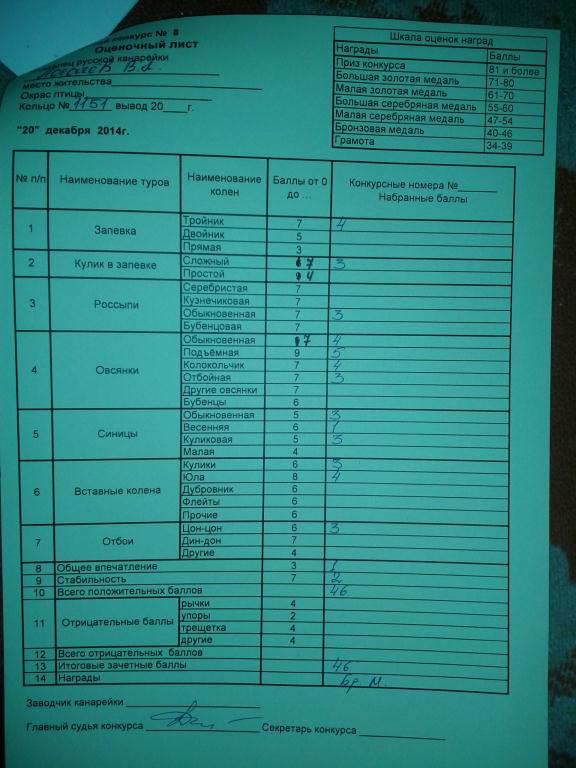 конкурс № 8
Оценочный лист
русской канарейки
В.А.
место жительства
Окрас птицы
Кольцо № 1151 вывод 20 г.
"20" декабря 2014г.
Шкала оценок наград
Награды Баллы
Приз конкурса 81 и более
Большая золотая медаль 71-80
Малая золотая медаль 61-70
Большая серебряная медаль 55-60
Малая серебряная медаль 47-54
Бронзовая медаль 40-46
Грамота 34-39
№ п/п Наименование туров Наименование колен Баллы от 0 до ... Конкурсные номера № Набранные баллы
1 Запевка Тройник 7 4
Двойник 5
Прямая 3
2 Кулик в запевке Сложный 7 3
Простой 4
3 Россыпи Серебристая 7
Кузнечиковая 7
Обыкновенная 7 3
Бубенцовая 7
4 Овсянки Обыкновенная 7 4
Подъёмная 9 5
Колокольчик 7 4
Отбойная 7 3
Другие овсянки 7
Бубенцы 6
5 Синицы Обыкновенная 5 3
Весенняя 6 1
Куликовая 5 3
Малая 4
6 Вставные колена Кулики 6 3
Юла 8 4
Дубровник 6
Флейты 6
Прочие 6
7 Отбои Цон-цон 6 3
Дин-дон 7
Другие 4
8 Общее впечатление 3 1
9 Стабильность 7 2
10 Всего положительных баллов 46
11 Отрицательные баллы рычки 4
упоры 2
трещетка 4
другие 4
12 Всего отрицательных баллов
13 Итоговые зачетные баллы 46
14 Награды Бр. М.
Заводчик канарейки
Главный судья конкурса Секретарь конкурса